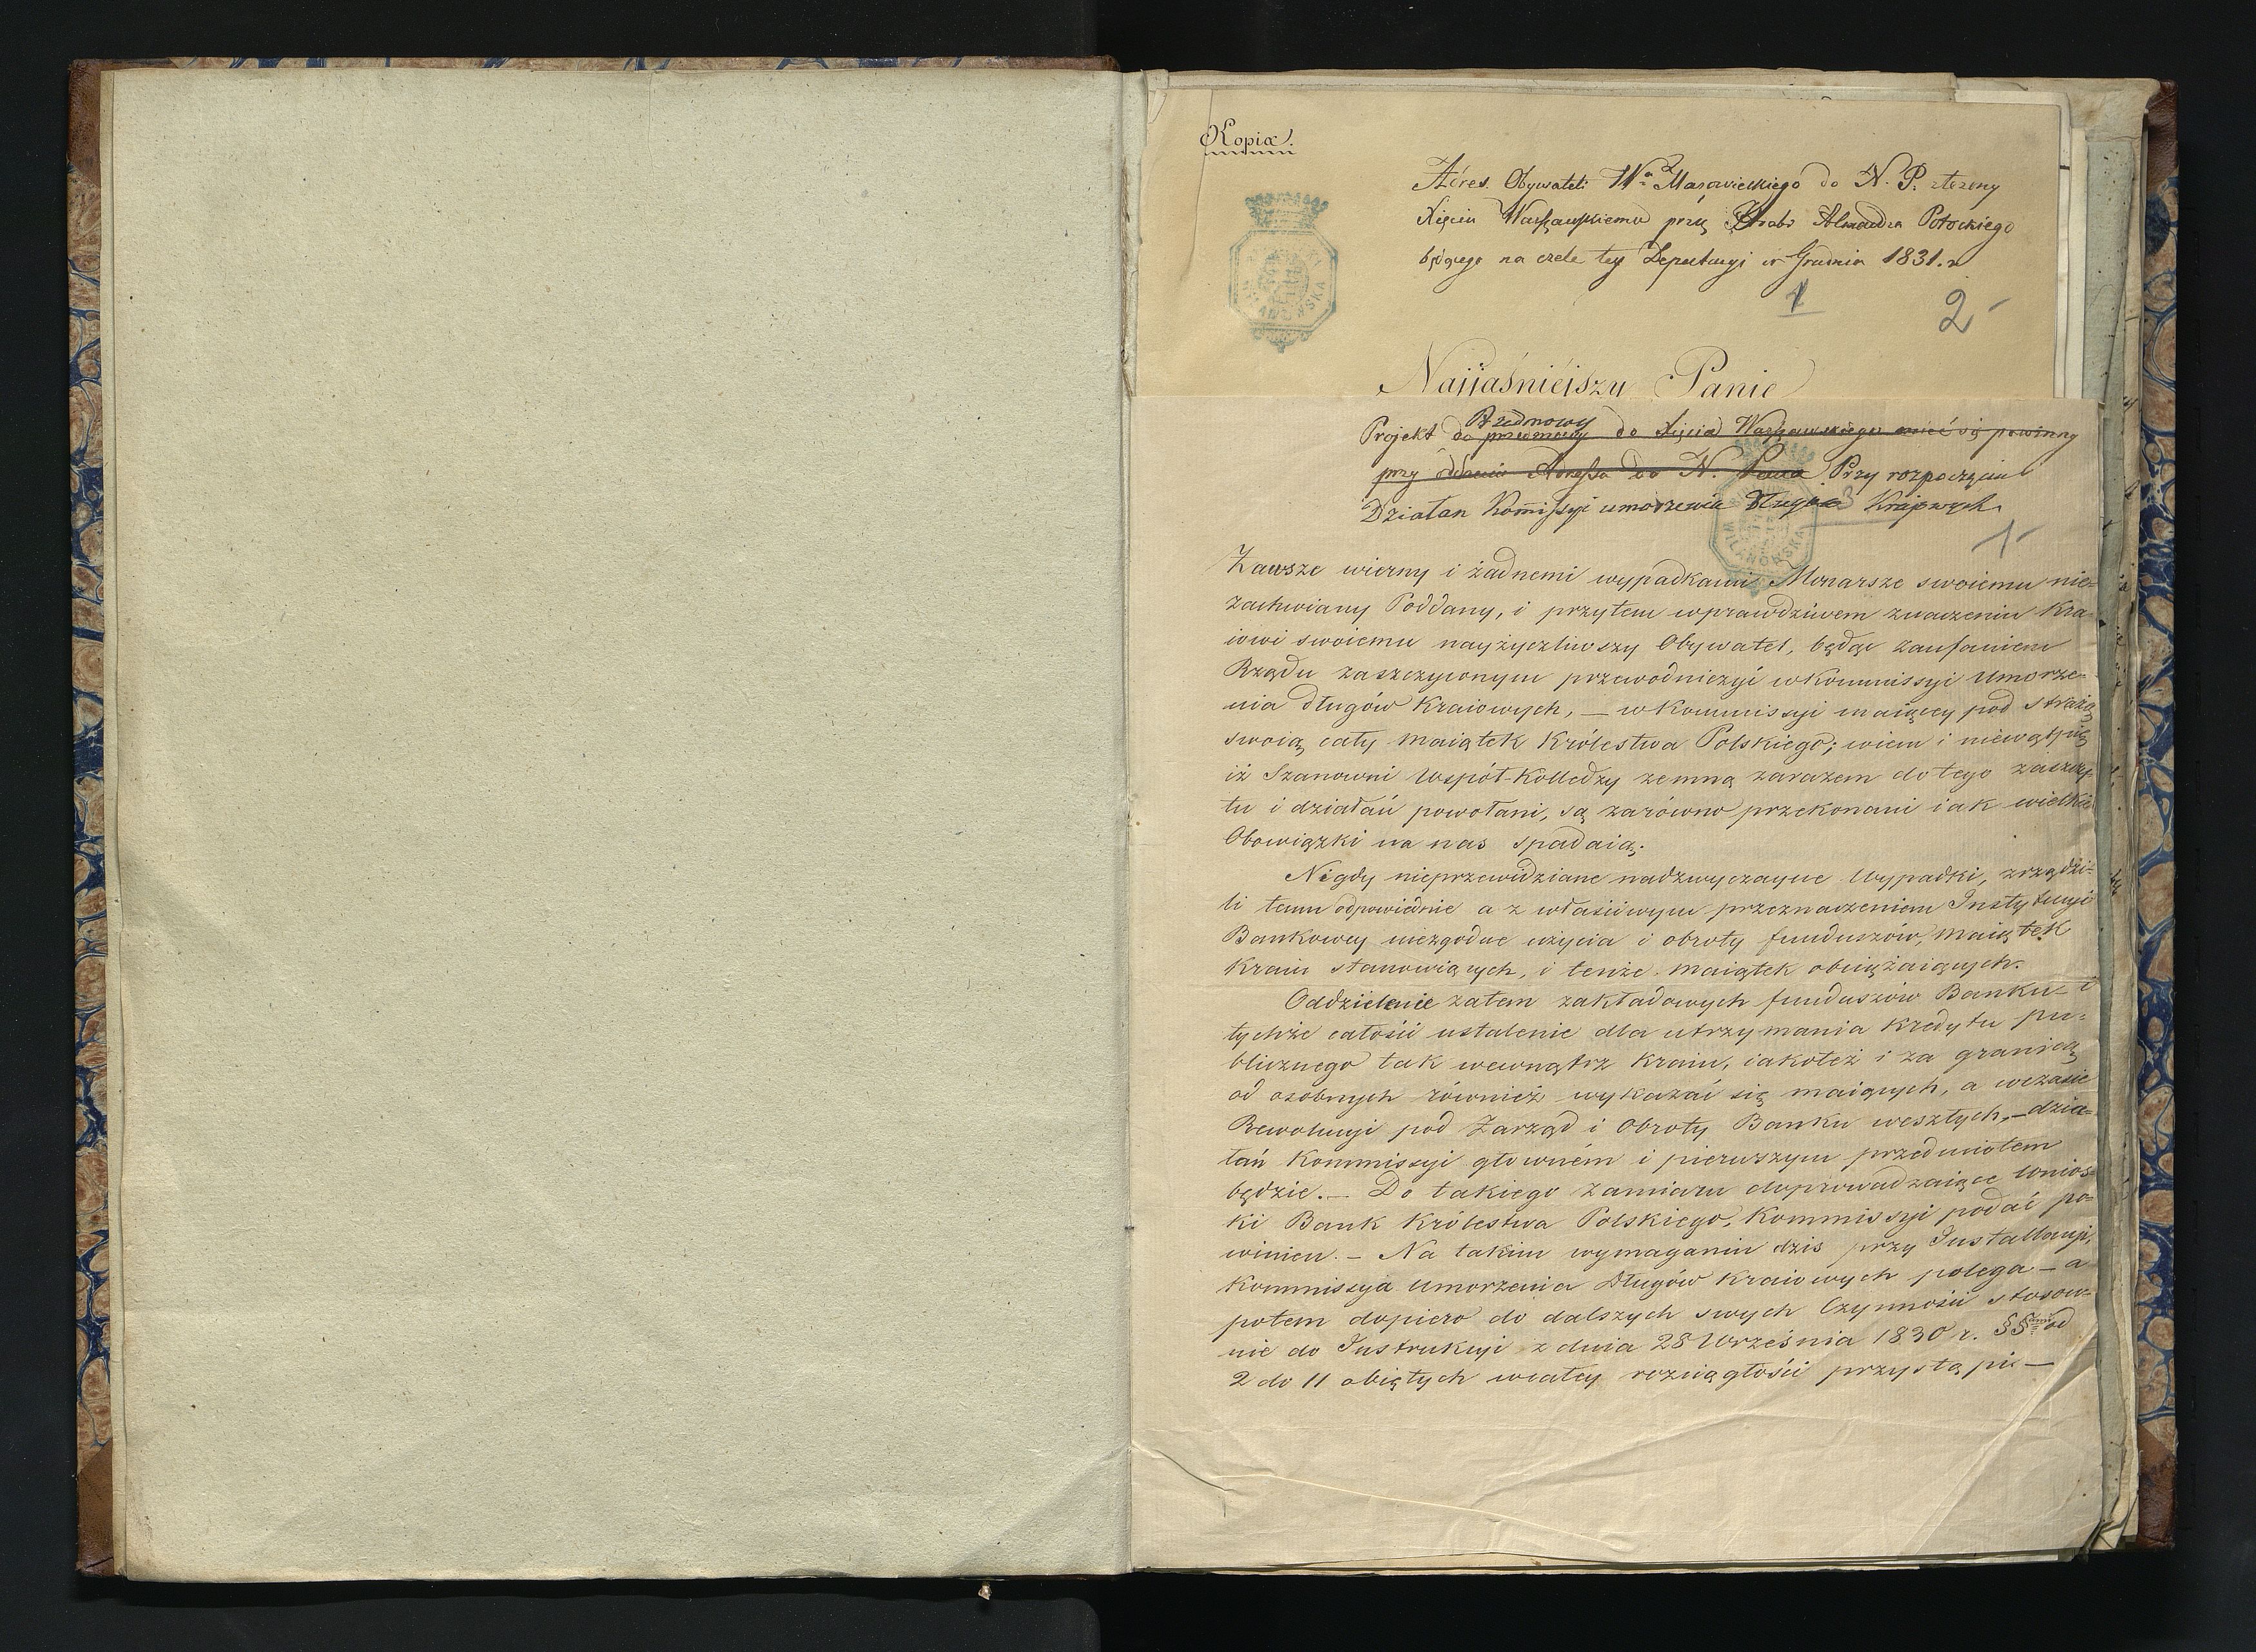 Kopia.
Adres Obywateli W<sup>a</sup> Mazowieckiego do N. P. złożony
Xięciu Warszawskiemu przez Hrabę Alexandra Potockiego
będącego na czele tey Deputacyi w Grudniu 1831. r
1
2
Najjaśniéjszy Panie
Projekt do przemowy Przedmowy do Xięcia Warszawskiego mieć się powinny
przy oddaniu Adressu do N. Pana Przy rozpoczęciu
Działań Kommissyi umorzenia Długów Krajowych.
1
Zawsze wierny i żadnemi wypadkami Monarsze swoiemu nie-
zachwiany Poddany, i przytem wprawdziwem znaczeniu Kra-
iowi swoiemu nayżyczliwszy Obywatel, będąc zaufaniem
Rządu zaszczyconym przewodniczyć w Kommissyi Umorze-
nia długów Kraiowych, — w Kommissyi maiącey pod strażą
swoią cały maiątek Królestwa Polskiego; wiem i niewątpię
iż Szanowni Współ-Kolledzy zemną zarazem do tego zaszczy-
tu i działań powołani, są zarówno przekonani iak wielkie
Obowiązki na nas spadaią.
Nigdy nieprzewidziane nadzwyczayne Wypadki, zrządzi-
li temu odpowiednie a z właściwym przeznaczeniem Instytucyi
Bankowey niezgodne użycia i obroty funduszów, maiątek
Kraiu stanowiących, i tenże maiątek obciążaiących.
Oddzielenie zatem zakładowych funduszów Banku i
tychże całości ustalenie dla utrzymania Kredytu pu-
blicznego tak wewnątrz Kraiu, iakoteż i za granicą
od osobnych również wykazać się maiących, a wczasie
Rewolucyi pod Zarząd i Obroty Banku weszłych, — dzia-
łań Kommissyi głowném i pierwszym przedmiotem
będzie. — Do takiego zamiaru doprowadzaiące Wnios-
ki Bank Królestwa Polskiego, Kommissyi podać po-
winien. — Na takim wymaganiu dziś przy Installacyi,
Kommissya Umorzenia Długów Kraiowych polega — a
potem dopiero do dalszych swych Czynności stosow-
nie do Instrukcyi z dnia 28 Września 1830 r. §§<sup>ami</sup> od
2 do 11 obiętych wcałey rozciągłości przystąpi —